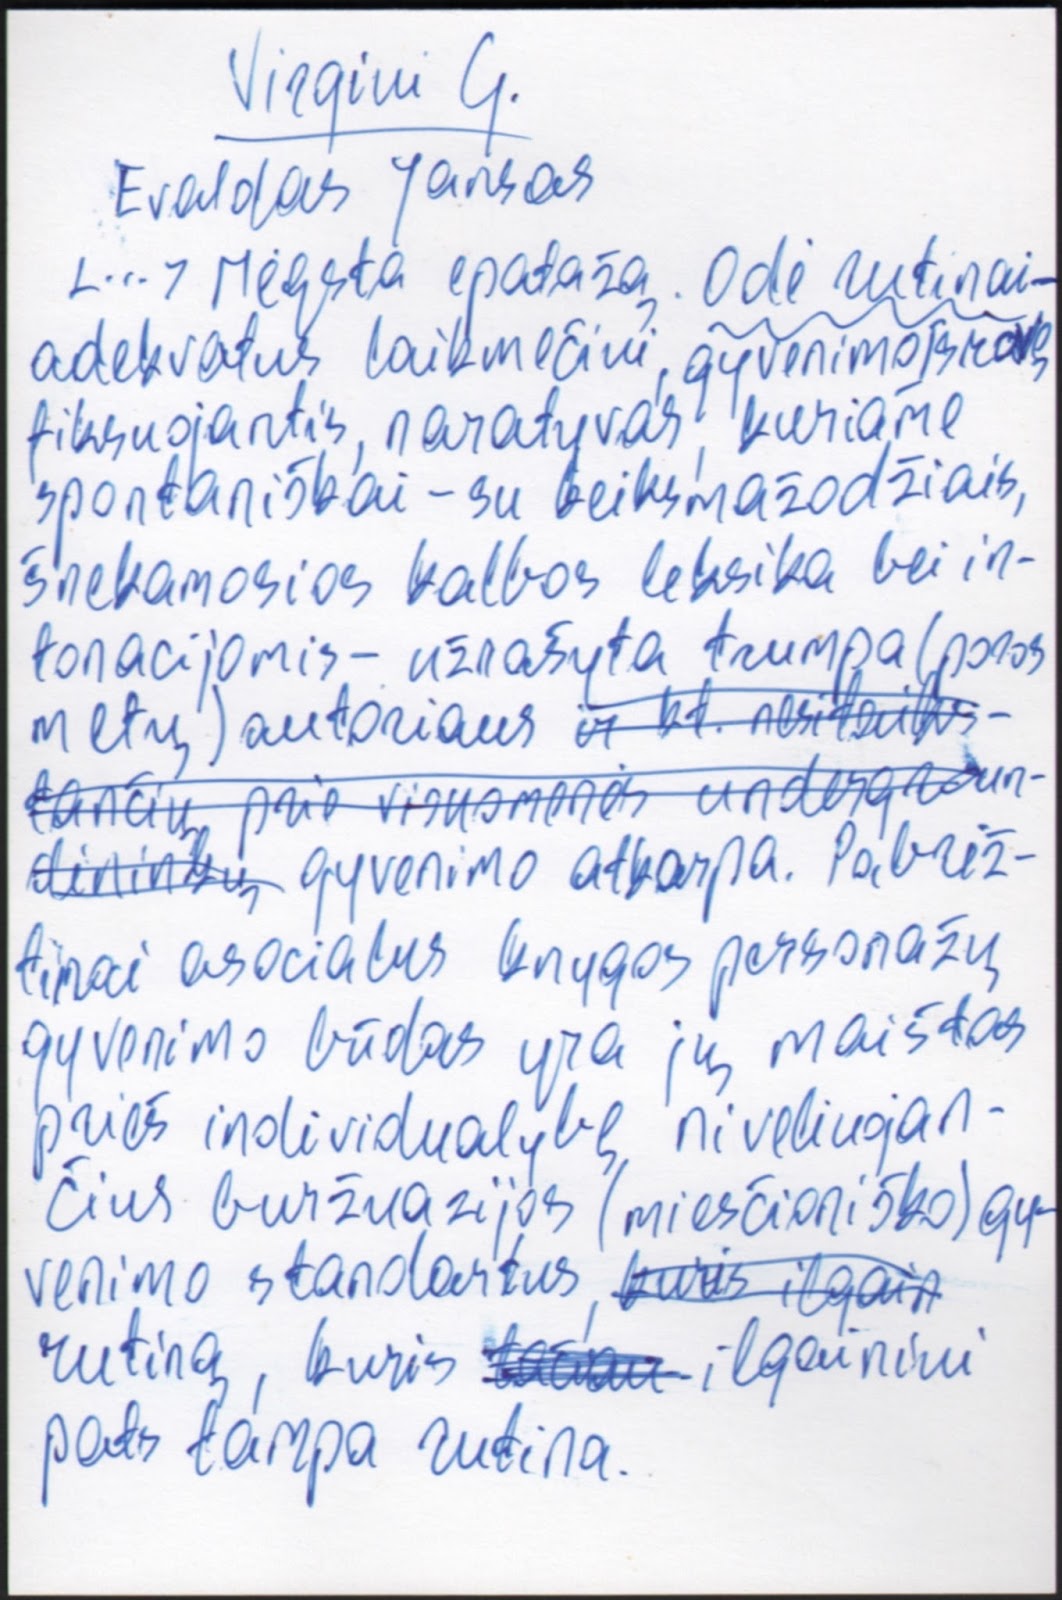 Virgini G.
Evaldas Jansas
<...> Mėgsta epatažą. Odė rutinai -
adekvatus laikmečiui, gyvenimo srovę
fiksuojantis, naratyvas, kuriame
spontaniškai – su keiksmažodžiais,
šnekamosios kalbos leksika bei in-
tonacijomis – užrašyta trumpa (poros
metų) autoriaus ir kt. nesitaiks-
tančių prie visuomenės undergroun-
dininkų gyvenimo atkarpa. Pabrėž-
tinai asocialus knygos personažų
gyvenimo būdas yra jų maištas
prieš individualybę niveliuojan-
čius buržuazijos (miesčioniško) gy-
venimo standartus, kuris ilgain
rutiną, kuris tačiau ilgainiui
pats tampa rutina.